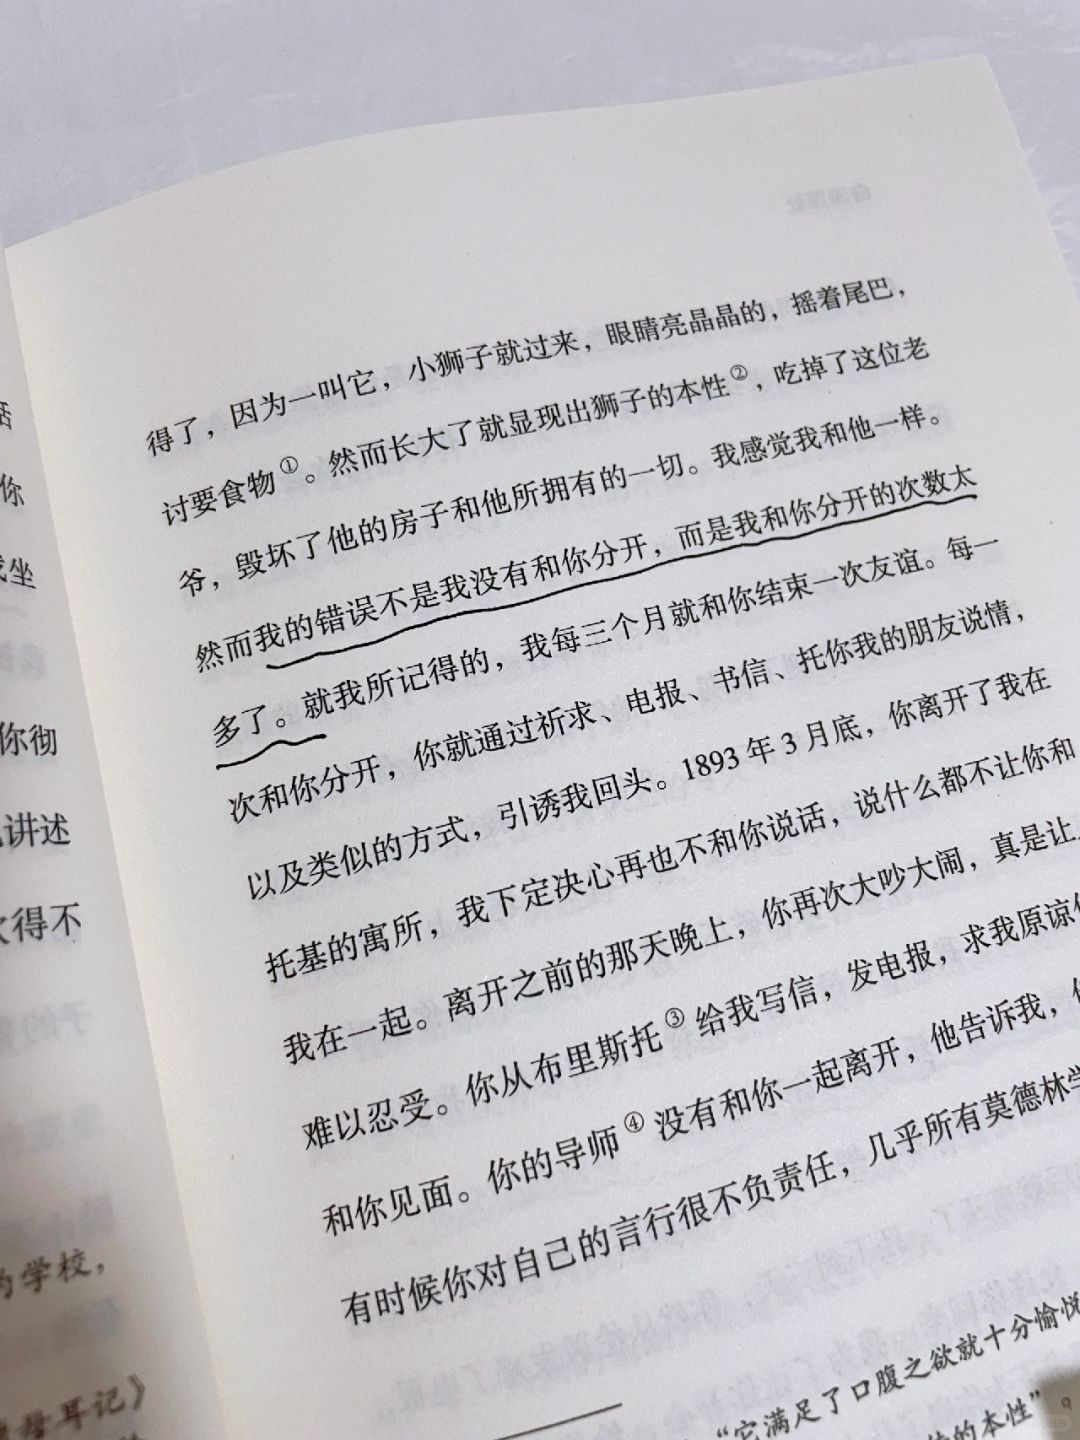 得了，因为一叫它，小狮子就过来，眼睛亮晶晶的，摇着尾巴，
讨要食物①。然而长大了就显现出狮子的本性②，吃掉了这位老
爷，毁坏了他的房子和他所拥有的一切。我感觉我和他一样。
然而我的错误不是我没有和你分开，而是我和你分开的次数太
多了。就我所记得的，我每三个月就和你结束一次友谊。每一
次和你分开，你就通过祈求、电报、书信、托你我的朋友说情，
以及类似的方式，引诱我回头。1893年3月底，你离开了我在
托基的寓所，我下定决心再也不和你说话，说什么都不让你和
我在一起。离开之前的那天晚上，你再次大吵大闹，真是让
难以忍受。你从布里斯托③给我写信，发电报，求我原谅
和你见面。你的导师④没有和你一起离开，他告诉我，
有时候你对自己的言行很不负责任，几乎所有莫德林学
“它满足了口腹之欲就十分愉悦
的本性”
9
你
坐
你彻
讲述
得不
学校，
耳记》